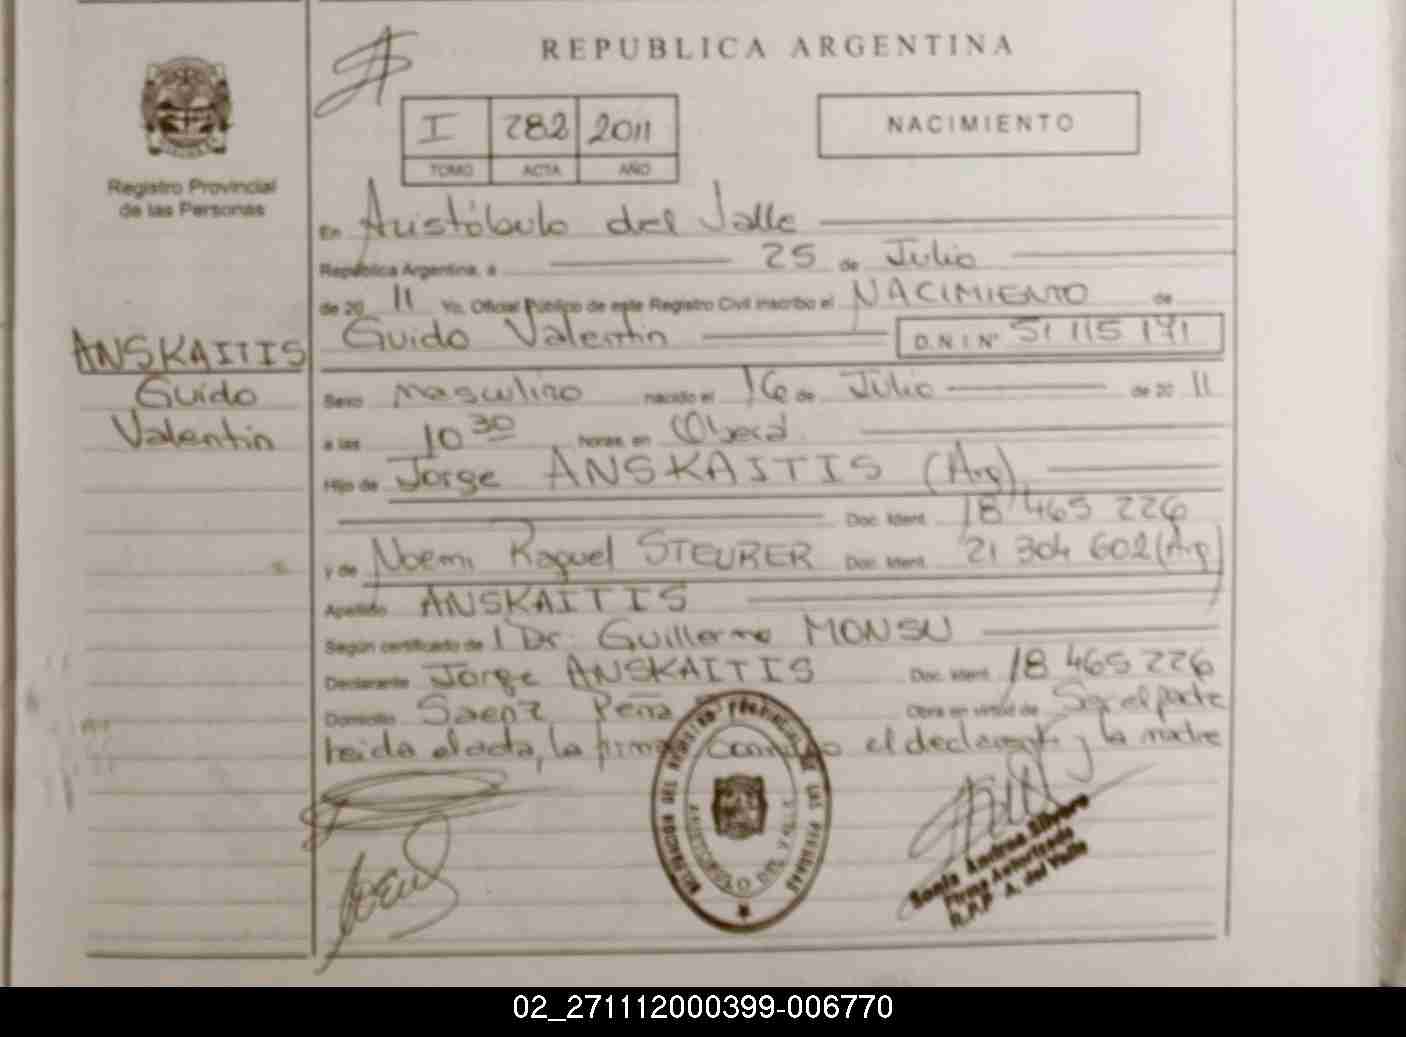 REPUBLICA ARGENTINA
I 282 2011
TOMO ACTA AÑO
NACIMIENTO
Registro Provincial
de las Personas
En Aristóbulo del Valle
República Argentina, a 25 de Julio
de 20 11 Yo, Oficial Público de este Registro Civil inscribo el NACIMIENTO de
Guido Valentin D.N.I Nº 51 115 171
ANSKAITIS
Guido
Valentin
Sexo masculino nacido el 16 de Julio de 20 11
a las 10 30 horas, en Oberá
Hijo de Jorge ANSKAITIS (Arg)
Doc. Ident. 18 465 226
y de Noemi Raquel STEURER Doc. Ident. 21 304 602 (Arg)
Apellido ANSKAITIS
Según certificado de Dr. Guillermo MONSU
Declarante Jorge ANSKAITIS Doc. Ident. 18 465 226
Domicilio Saenz Peña Obra en virtud de Ser el padre
leida el acta, la firma conmigo el declarante y la madre
DELEGACION DEL REGISTRO PROVINCIAL DE LAS PERSONAS
ARISTOBULO DEL VALLE
Sonia Andrea Silvero
Firma Autorizada
R.P.P A. del Valle
02_271112000399-006770